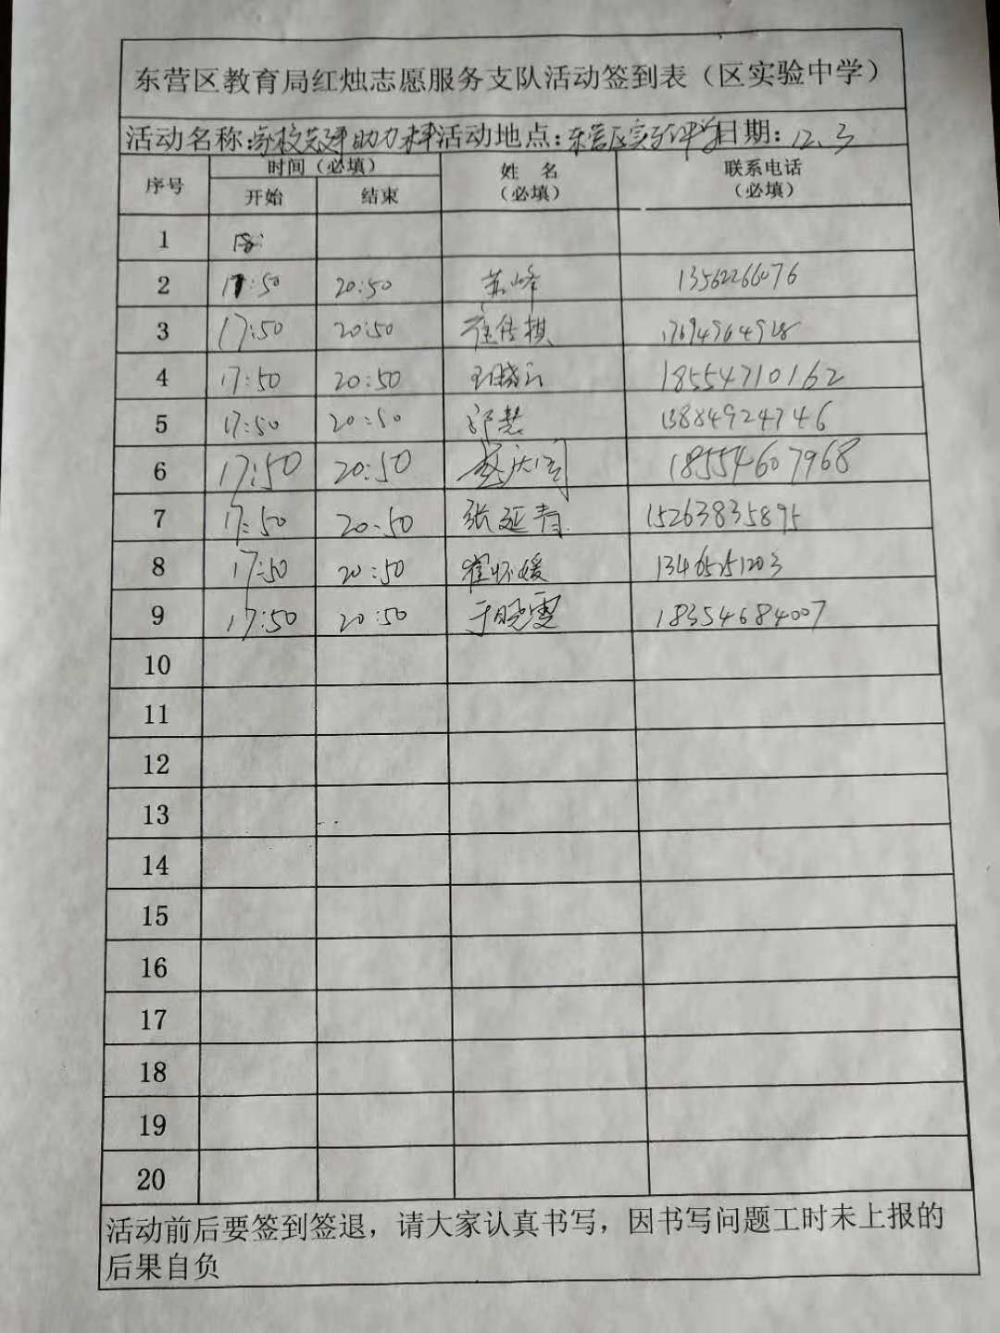 东营区教育局红烛志愿服务支队活动签到表（区实验中学）
活动名称: 活动地点:东营区实验中学 日期: 12.3
序号 时间（必填） 姓 名（必填） 联系电话（必填）
开始 结束
1
2 17:50 20:50 13562266076
3 17:50 20:50 17694964928
4 17:50 20:50 18554710162
5 17:50 20:50 13884924746
6 17:50 20:50 18554607968
7 17:50 20:50 张延青 15263835895
8 17:50 20:50 崔怀媛 13465251203
9 17:50 20:50 于晓雯 18354684007
10
11
12
13
14
15
16
17
18
19
20
活动前后要签到签退，请大家认真书写，因书写问题工时未上报的
后果自负